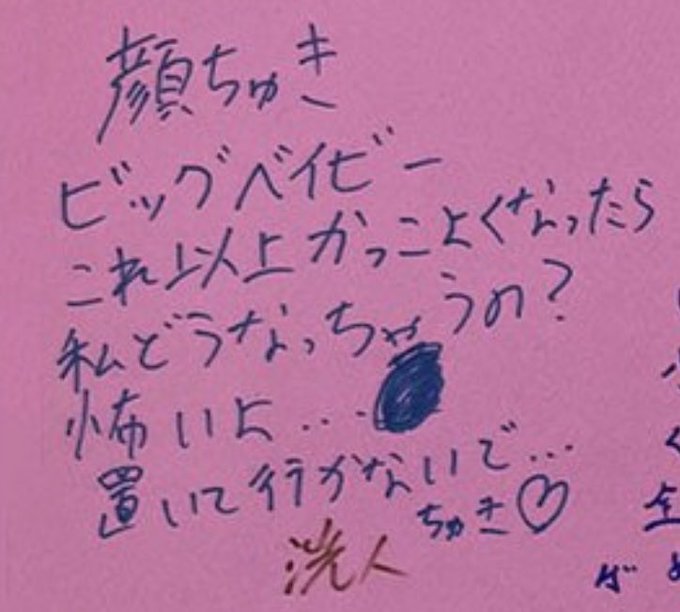 顔ちゅき
ビッグベイビー
これ以上かっこよくなったら
私どうなっちゃうの?
怖いよ...
置いて行かないで...
ちゅき♡
洸人